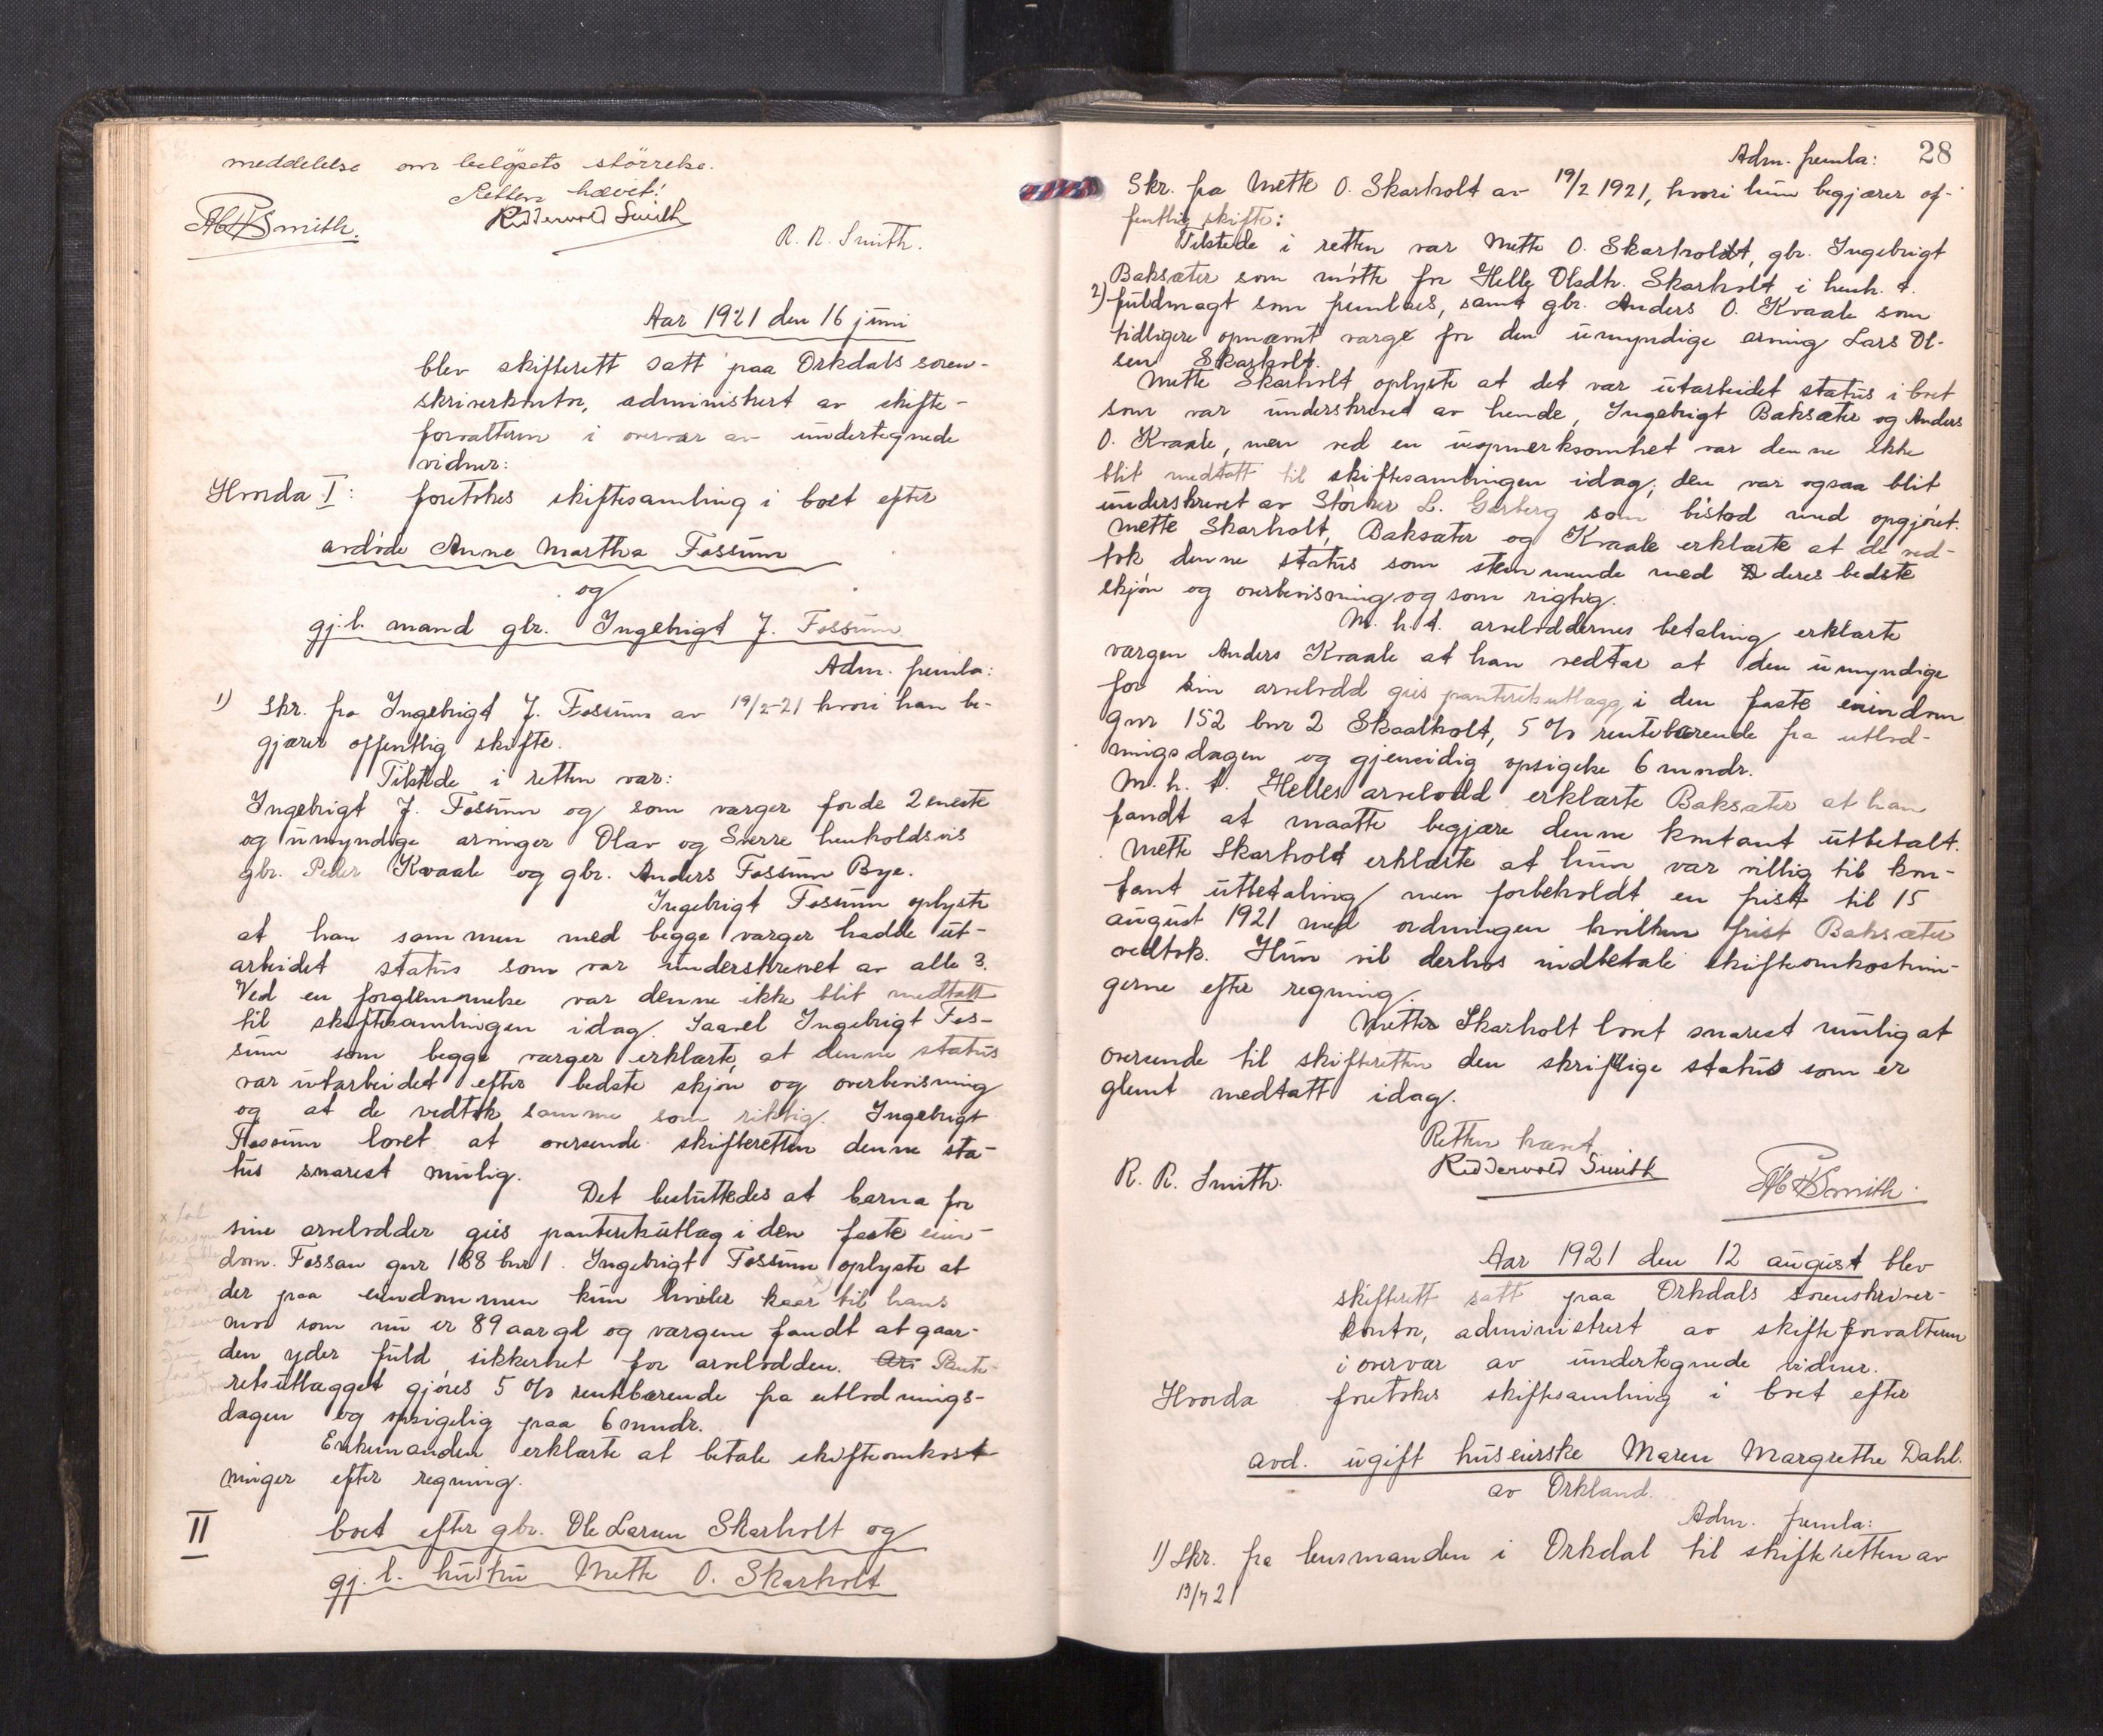 meddelelse om beløpets størrelse.
Retten hævet!
Ridderwold Smith
R. R. Smith.
Smith.
Aar 1921 den 16 juni
blev skifterett satt paa Orkdals soren-
skriverkontor, administrert av skifte-
forvalteren i overvær av undertegnede
vidner:
Hvorda I: foretokes skiftesamling i boet efter
avdøde Anne Martha Fossum
og
gj.l. mand gbr. Ingebrigt J. Fossum
Adm. fremla:
1) Skr. fra Ingebrigt J. Fossum av 19/2-21 hvori han be-
gjærer offentlig skifte.
Tilstede i retten var:
Ingebrigt J. Fossum og som værger for de 2 eneste
og umyndige arvinger Olav og Sverre henholdsvis
gbr. Peder Kvaale og gbr. Anders Fossum Bye.
Ingebrigt Fossum oplyste
at han sammen med begge værger hadde ut-
arbeidet status som var underskrevet av alle 3.
Ved en forglemmelse var denne ikke blit medtatt
til skiftesamlingen idag. Saavel Ingebrigt Fos-
sum som begge værger erklærte, at denne status
var utarbeidet efter bedste skjøn og overbevisning
og at de vedtok samme som riktig. Ingebrigt
Fossum lovet at oversende skifteretten denne sta-
tus snarest mulig.
Det besluttedes at barna for
sine arvelodder gies panteretsutlæg i den faste eien-
dom Fossan gnr 188 bnr 1. Ingebrigt Fossum oplyste at
der paa eiendommen kun hviler kaar x) til hans
mor som nu er 89 aar gl og værgene fandt at gaar-
den yder fuld sikkerhet for arvelodden. Arv Pante-
retsutlægget gjøres 5 % rentebærende fra utlodnings-
dagen og opsigelig paa 6 mndr.
Enkemanden erklærte at betale skifteomkost-
ninger efter regning.
II boet efter gbr. Ole Larsen Skarholt og
gj. l. hustru Mette O. Skarholt
28
Adm. fremla:
Skr. fra Mette O. Skarholt av 19/2 1921, hvori hun begjærer of-
fentlig skifte:
Tilstede i retten var Mette O. Skarholdt, gbr. Ingebrigt
Baksæter som møtte for Helle Olsdtr. Skarholt i henh. t.
2) fuldmagt som fremlaes, samt gbr. Anders O. Kvaale som
tidligere opnævnt værge for den umyndige arving Lars Ol-
sen Skarholt.
Mette Skarholt oplyste at det var utarbeidet status i boet
som var underskrevet av hende, Ingebrigt Baksæter og Anders
O. Kvaale, men ved en uopmerksomhet var denne ikke
blit medtatt til skiftesamlingen idag; den var ogsaa blit
underskrevet av Størker L. Garberg som bistod med opgjøret.
Mette Skarholt, Baksæter og Kvaale erklærte at de ved-
tok denne status som stemmende med deres bedste
skjøn og overbevisning og som rigtig.
M. h. t. arveloddernes betaling erklærte
værgen Anders Kvaale at han vedtar at den umyndige
for sin arvelodd gies panteretsutlægg i den faste eiendom
gnr 152 bnr 2 Skaalholt, 5 % rentebærende fra utlod-
ningsdagen og gjensidig opsigelse 6 mndr.
M. h. t. Helles arvelodd erklærte Baksæter at han
fandt at maatte begjære denne kontant utbetalt.
Mette Skarholt erklærte at hun var villig til kon-
tant utbetaling men forbeholdt en frist til 15
august 1921 med ordningen hvilken frist Baksæter
vedtok. Hun vil derhos indbetale skifteomkostnin-
gerne efter regning.
Mette Skarholt lovet snarest mulig at
oversende til skifteretten den skriftlige status som er
glemt medtatt idag.
Retten hævet
R. R. Smith. Ridderwold Smith Smith.
Aar 1921 den 12 august blev
skifterett satt paa Orkdals sorenskriver-
kontor, administrert av skifteforvalteren
i overvær av undertegnede vidner.
Hvorda foretokes skiftesamling i boet efter
avd. ugift huseierske Maren Margrethe Dahl.
av Orkland.
Adm. fremla:
1) Skr. fra lensmanden i Orkdal til skifteretten av
13/7 21